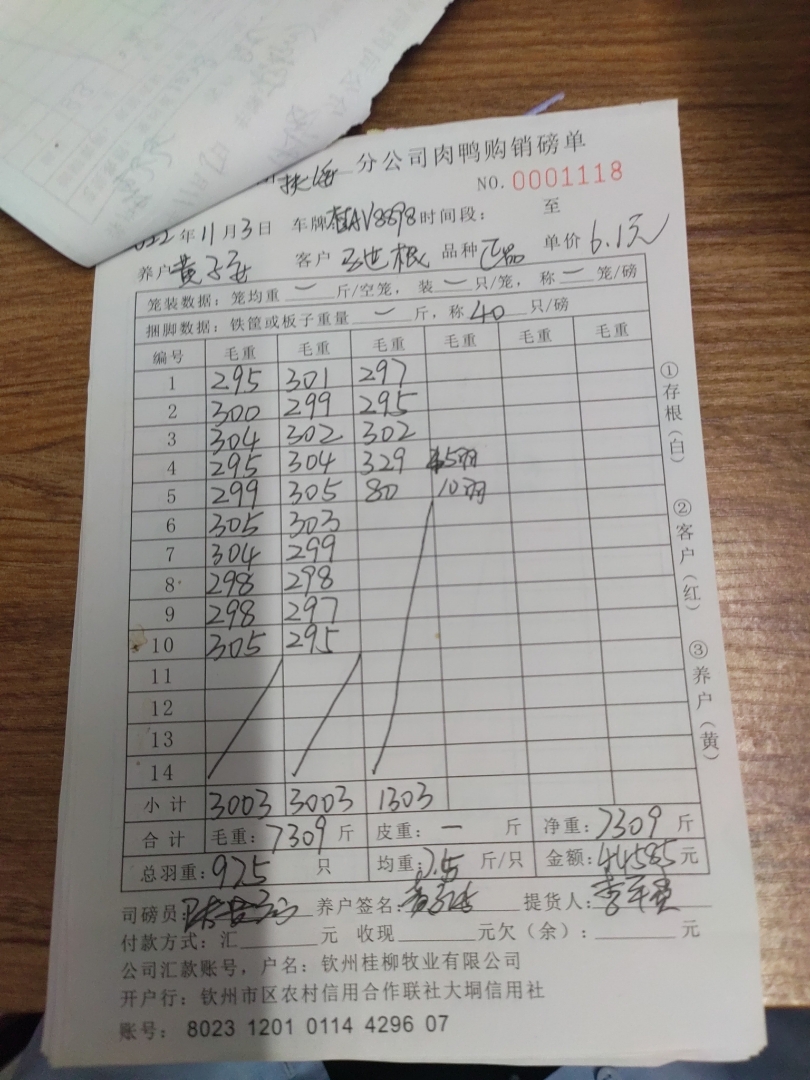 分公司肉鸭购销磅单
NO. 0001118
022年11月3日 车牌桂AV8898时间段： 至
养户黄子 客户 品种正品 单价6.1元
笼装数据：笼均重一斤/空笼，装一只/笼，称一笼/磅
捆脚数据：铁筐或板子重量一斤，称40只/磅
编号 毛重 毛重 毛重 毛重 毛重 毛重
1 295 301 297
2 300 299 295
3 304 302 302
4 295 304 329 45羽
5 299 305 80 10羽
6 305 303
7 304 299
8 298 298
9 298 297
10 305 295
11
12
13
14
小计 3003 3003 1303
合计 毛重：7309斤 皮重：一斤 净重：7309斤
总羽重：975只 均重：7.5斤/只 金额：44585元
司磅员： 养户签名： 提货人：
付款方式：汇 元 收现 元欠（余）： 元
公司汇款账号，户名：钦州桂柳牧业有限公司
开户行：钦州市区农村信用合作联社大垌信用社
账号：8023 1201 0114 4296 07
①存根（白）
②客户（红）
③养户（黄）